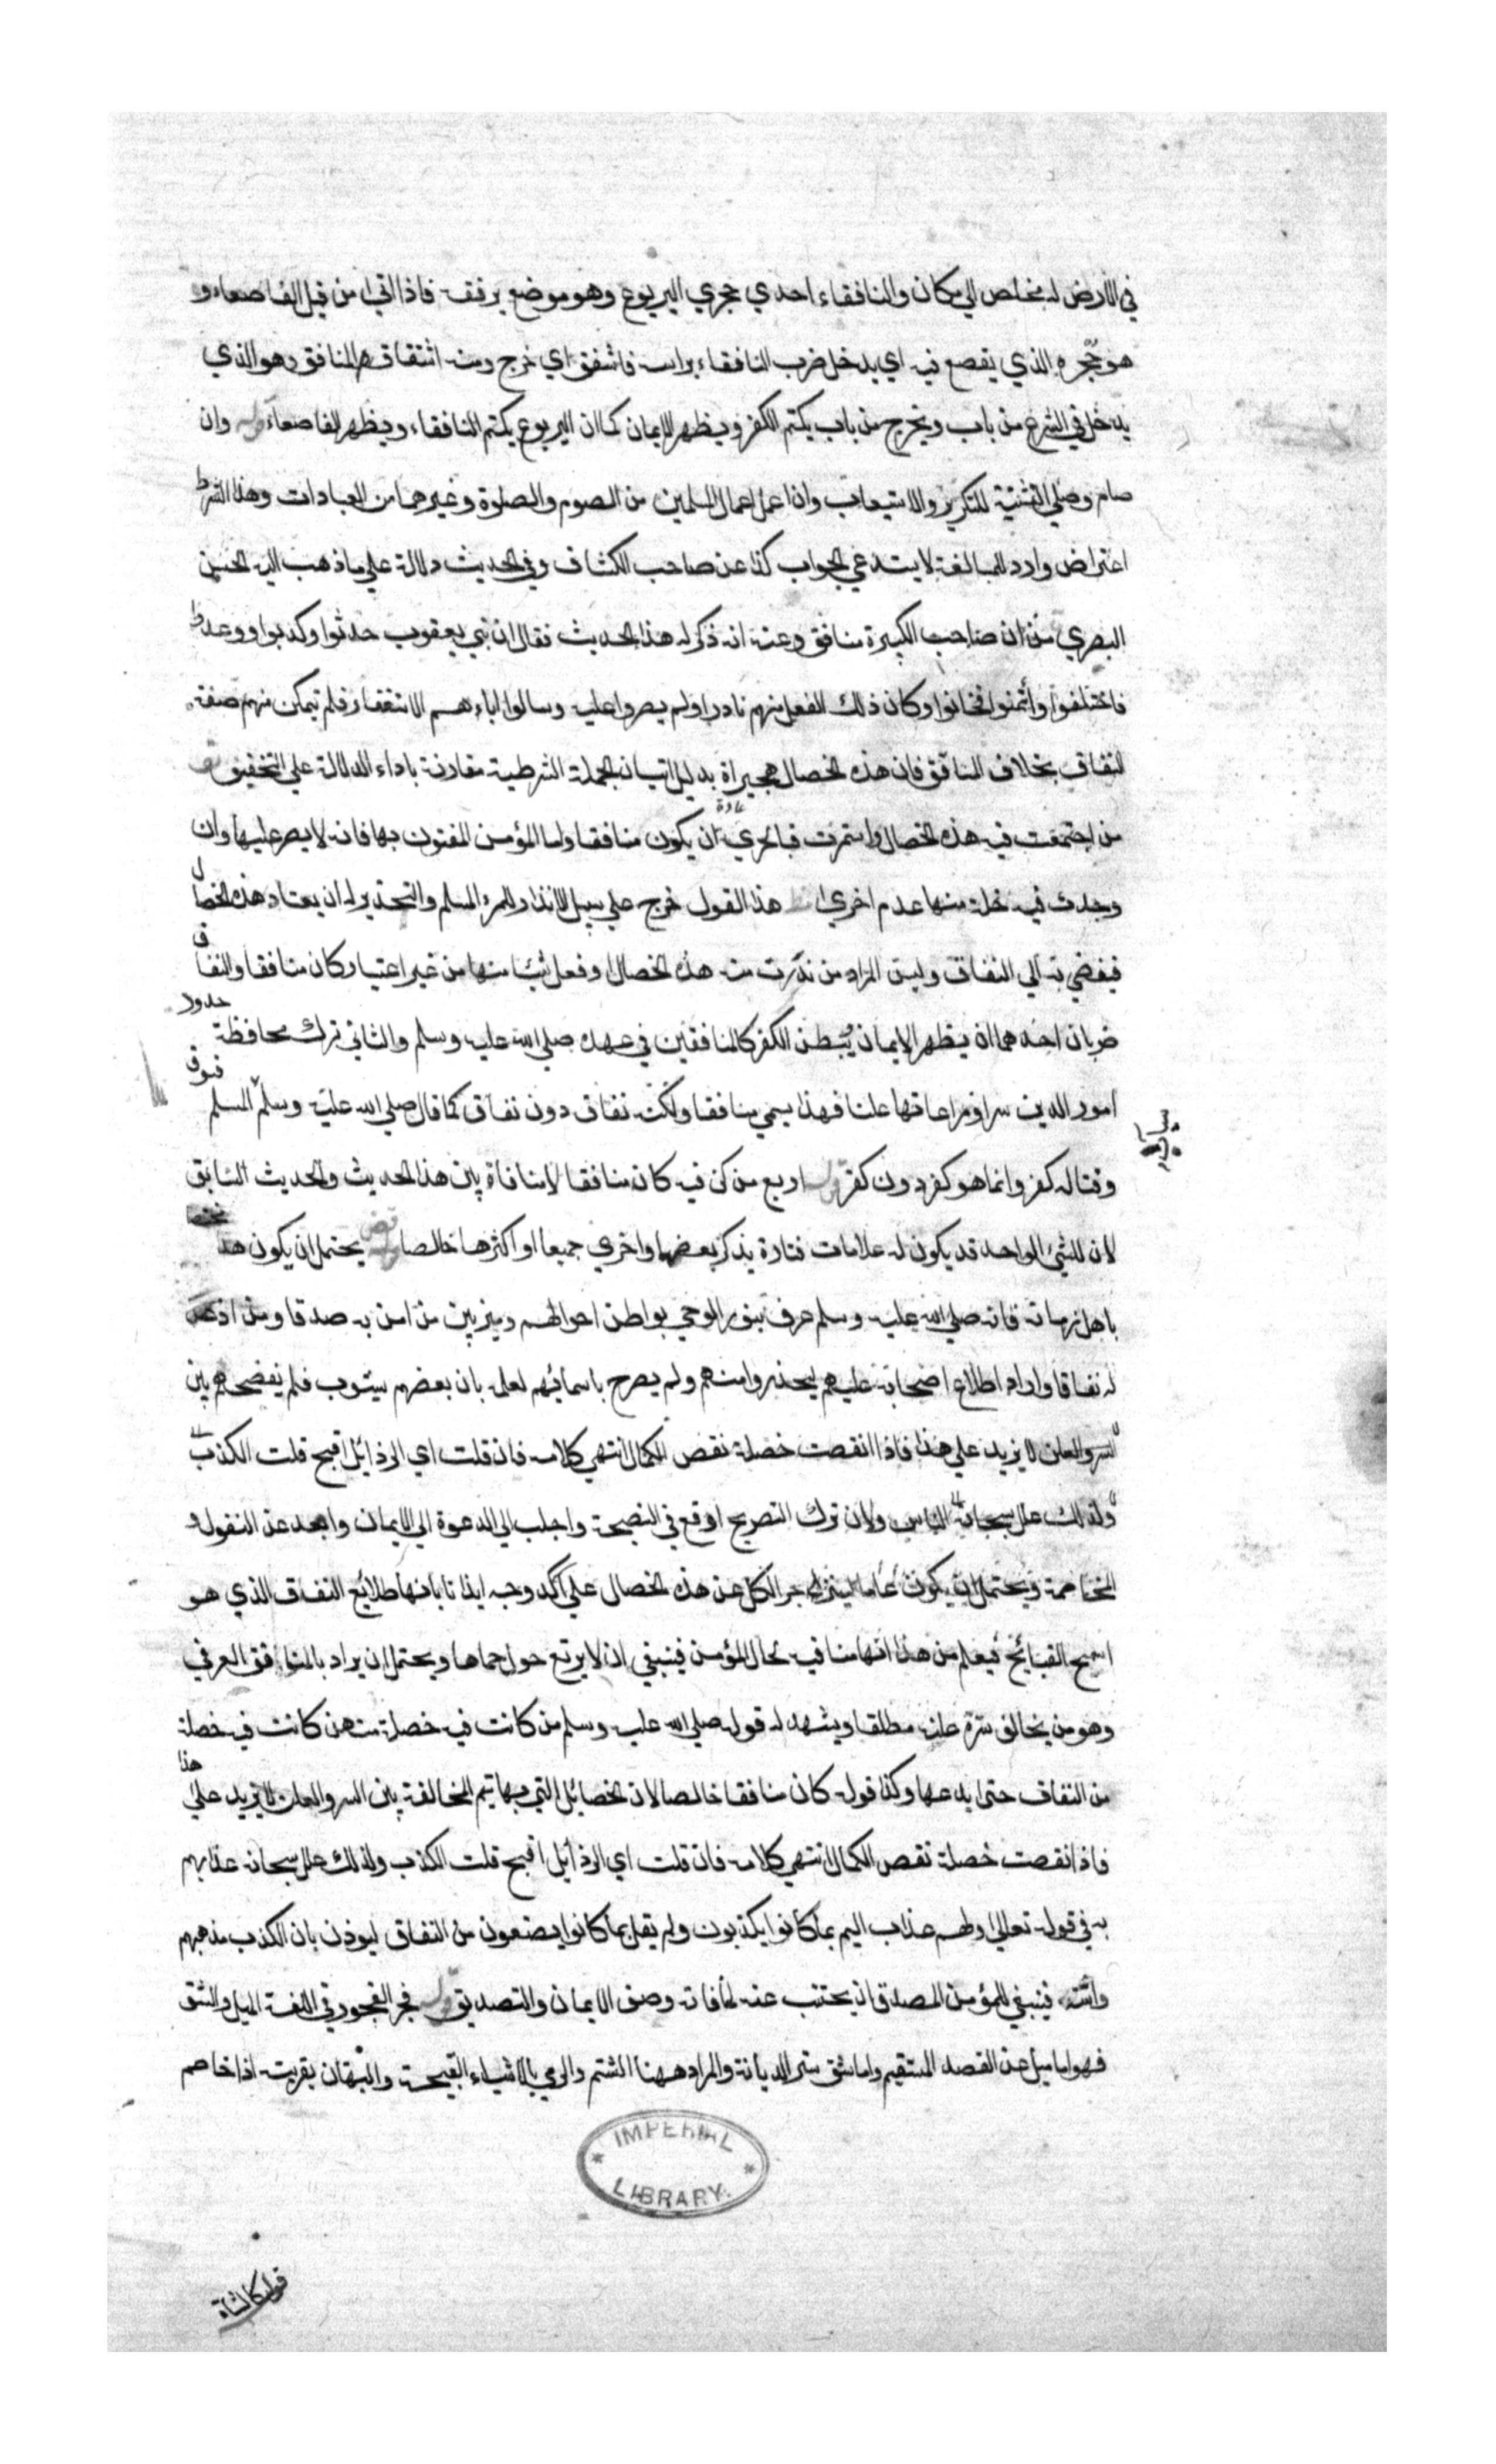 في الارض له مخلص الي مكان والنافقاء احدي جحري اليربوع وهو موضع يرققه فاذا اتي من قبل القاصعاء و
هو جحره الذي يقصع فيه اي يدخل ضرب النافقاء براسه فانتفق اي خرج ومنه اشتقاق المنافق وهو الذي
يدخل في الشرع من باب ويخرج من باب يكتم الكفر ويظهر الايمان كما ان اليربوع يكتم النافقاء ويظهر القاصعاء قوله وان
صام وصلي التثنية للتكرير والاستيعاب وان عمل اعمال المسلمين من الصوم والصلوة وغيرهما من العبادات وهذا الشرط
اعتراض وارد للمبالغة لا يستدعي الجواب كذا عن صاحب الكشاف وفي الحديث دلالة علي ما ذهب اليه الحسن
البصري من ان صاحب الكبيرة منافق وعنه انه ذكر له هذا الحديث فقال ان بني يعقوب حدثوا وكذبوا ووعدوا
فاختلفوا وأتمنوا فخانوا وكان ذلك الفعل منهم نادرا ولم يصروا عليه وسالوا اباءهم الاستغفار فلم تتمكن منهم صفة
النفاق بخلاف المنافق فان هذه الخصال هجيراة بدليل اتيان الجملة الشرطية مقارنة باداء الدلالة علي التحقيق
من اجتمعت فيه هذه الخصال واستمرت فبالحري عادة ان يكون منافقا واما المؤمن المفتون بها فانه لا يصر عليها وان
وجدت فيه خلة منها عدم اخري هذا القول خرج علي سبيل الانذار للمرء المسلم والتحذير له ان يعتاد هذه الخصال
فيفضي به الي النفاق وليس المراد من ندرت منه هذه الخصال او فعل شيئا منها من غير اعتياد كان منافقا والنفاق
ضربان احدهما ان يظهر الايمان يُبطن الكفر كالمنافقين في عهده صلي الله عليه وسلم والثاني ترك محافظة حدود
امور الدين سرا ومراعاتها علنا فهذا يسمي منافقا ولكنه نفاق دون نفاق كما قال صلي الله عليه وسلم المسلم فسوق
وقتاله كفر وانما هو كفر دون كفر قوله اربع من كن فيه كان منافقا لا منافاة بين هذا الحديث والحديث السابق
لان للشئ الواحد قد يكون له علامات فتارة يذكر بعضها واخري جميعا او اكثرها خالصا يحتمل ان يكون هذا
باهل زمانه فانه صلي الله عليه وسلم عرف بنور الوحي بواطن احوالهم وميز بين من امن به صدقا ومن اذعن
له نفاقا واراد اطلاع اصحابه عليهم ليحذروا منهم ولم يصرح باسمائهم لعلمه بان بعضهم سيتوب فلم يفضحهم بين
السر والعلن لا يزيد علي هذا فاذا انقصت خصلة نقص الكمال انتهي كلامه فان قلت اي الرذائل اقبح قلت الكذب
ولذلك علل سبحانه الناس ولان ترك التصريح اوقع في النصيحة واجلب الي الدعوة الي الايمان وابعد عن النفور و
المخاصمة ويحتمل ان يكون عاما لينزجر الكل عن هذه الخصال علي اكد وجه ايذانا بانها طلائع النفاق الذي هو
اسمج القبائح فيعلم من هذا انها منافيه لحال المؤمن فينبغي ان لا يرتع حول حماها ويحتمل ان يراد بالمنافق العرفي
وهو من يخالف سرّه علنه مطلقا ويشهد له قوله صلي الله عليه وسلم من كانت فيه خصلة منهن كانت فيه خصلة
من النفاق حتي يدعها وكذا قوله كان منافقا خالصا لان الخصائل التي بها تتم المخالفة بين السر والعلن لا يزيد علي هذا
فاذا نقصت خصلة نقص الكمال انتهي كلامه فان قلت اي الرذائل اقبح قلت الكذب ولذلك علل سبحانه عذابهم
به في قوله تعالي ولهم عذاب اليم بما كانوا يكذبون ولم يقل بما كانوا يصنعون من النفاق ليوذن بان الكذب مذهبهم
فينبغي للمؤمن المصدق ان يجتنب عنه لمنافاته وصف الايمان والتصديق قوله فجر الفجور في اللغة الميل والشق
فهو اما ميل عن القصد المستقيم واما شق ستر الديانة والمراد ههنا الشتم والرمي بالاشياء القبيحة والبهتان بقرينة اذا خاصم
IMPERIAL LIBRARY.
قوله كالشاة